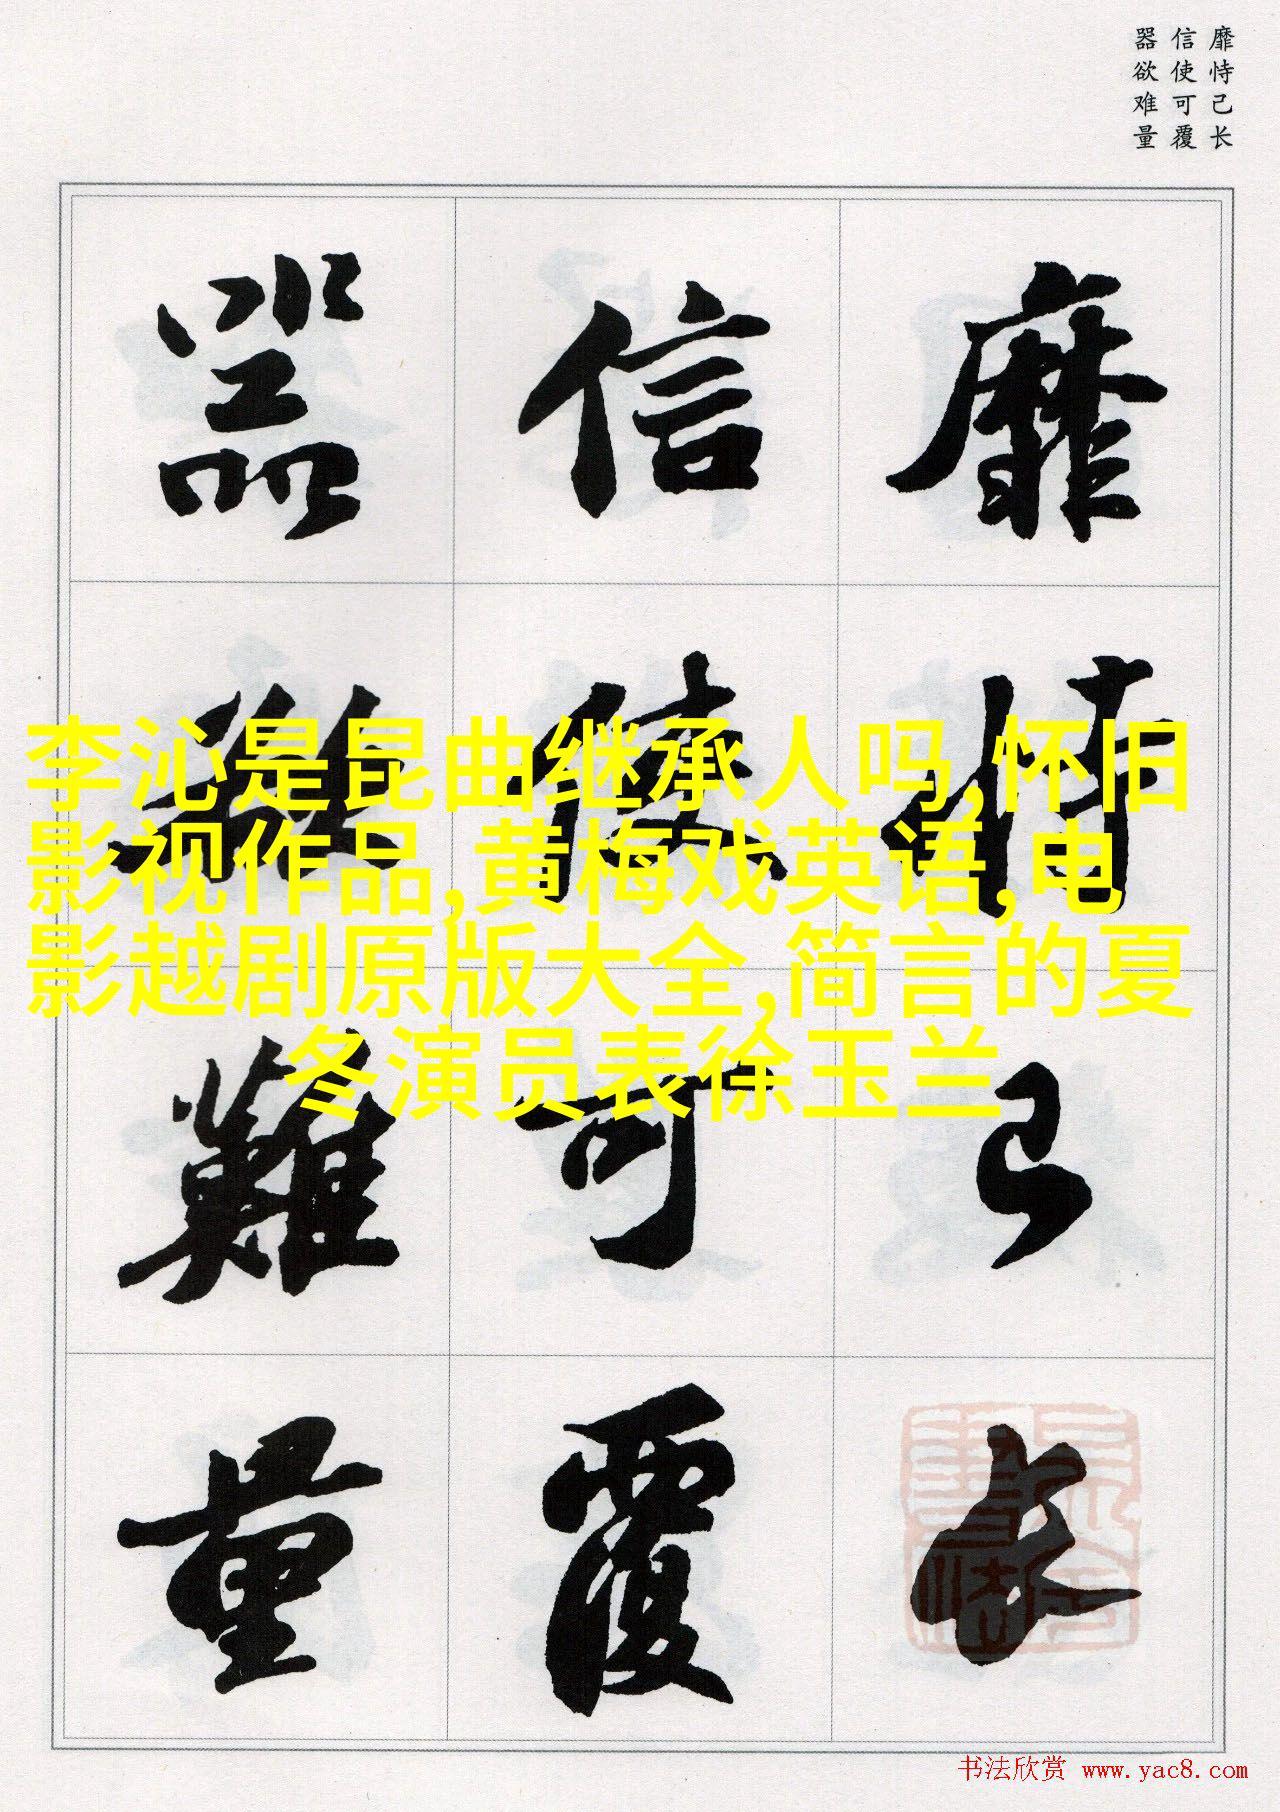 靡恃己长
信使可覆
器欲难量
靡恃己长
信使可覆
器欲難量
李沁是昆曲继承人吗,怀旧
影视作品,黄梅戏英语,电
影越剧原版大全,简言的夏
冬演员表徐玉兰
书法欣赏 www.yac8.com